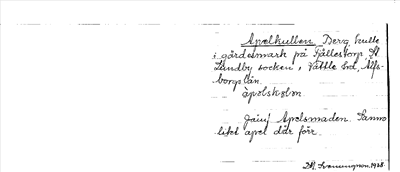 Apelkullen Berg kulle
i gärdesmark på Fjällestorp, St
Lundby socken i Vättle hd, Älfs-
borgs län.
àpəlskələn
Jämf Apelsmaden. Sanno-
likt apel där förr.
1928